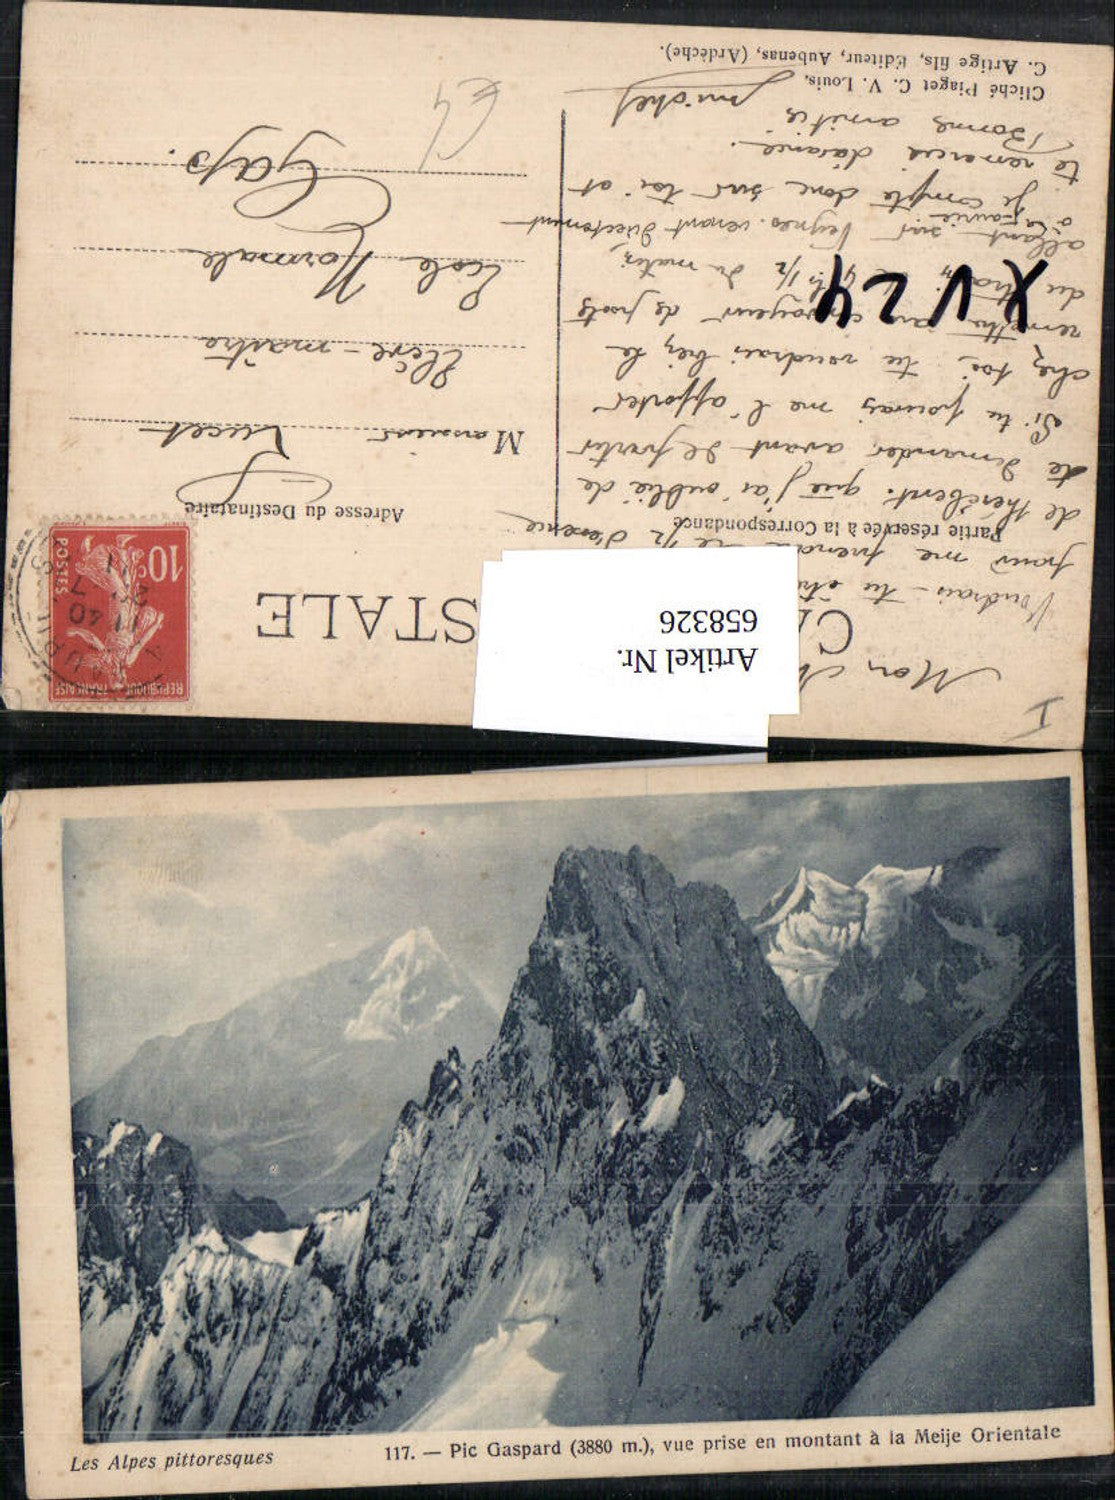 CA STALE
Partie réservée à la Correspondance
Adresse du Destinataire
Artikel Nr.
658326
I
Mon
Voudrais-tu
pour me 1/2 d'essence
de thérébent. que j'ai oublié de
te demander avant de partir
Si tu pouvais me l'apporter
chez toi, tu voudrais bien le
remettre au convoyeur de poste
du train 4h 1/2 du matin,
allant sur Veynes venant directement
à la Faurie
je compte donc sur toi et
te remercie d'avance.
Bonnes amitiés
Michel
XV24
Monsieur
Elève-maître
Ecole Normale
Gap.
€4
10c
POSTES
REPUBLIQUE FRANÇAISE
11 40
Cliché Piaget C. V. Louis,
C. Artige fils, Éditeur, Aubenas, (Ardèche).
Les Alpes pittoresques
117. — Pic Gaspard (3880 m.), vue prise en montant à la Meije Orientale